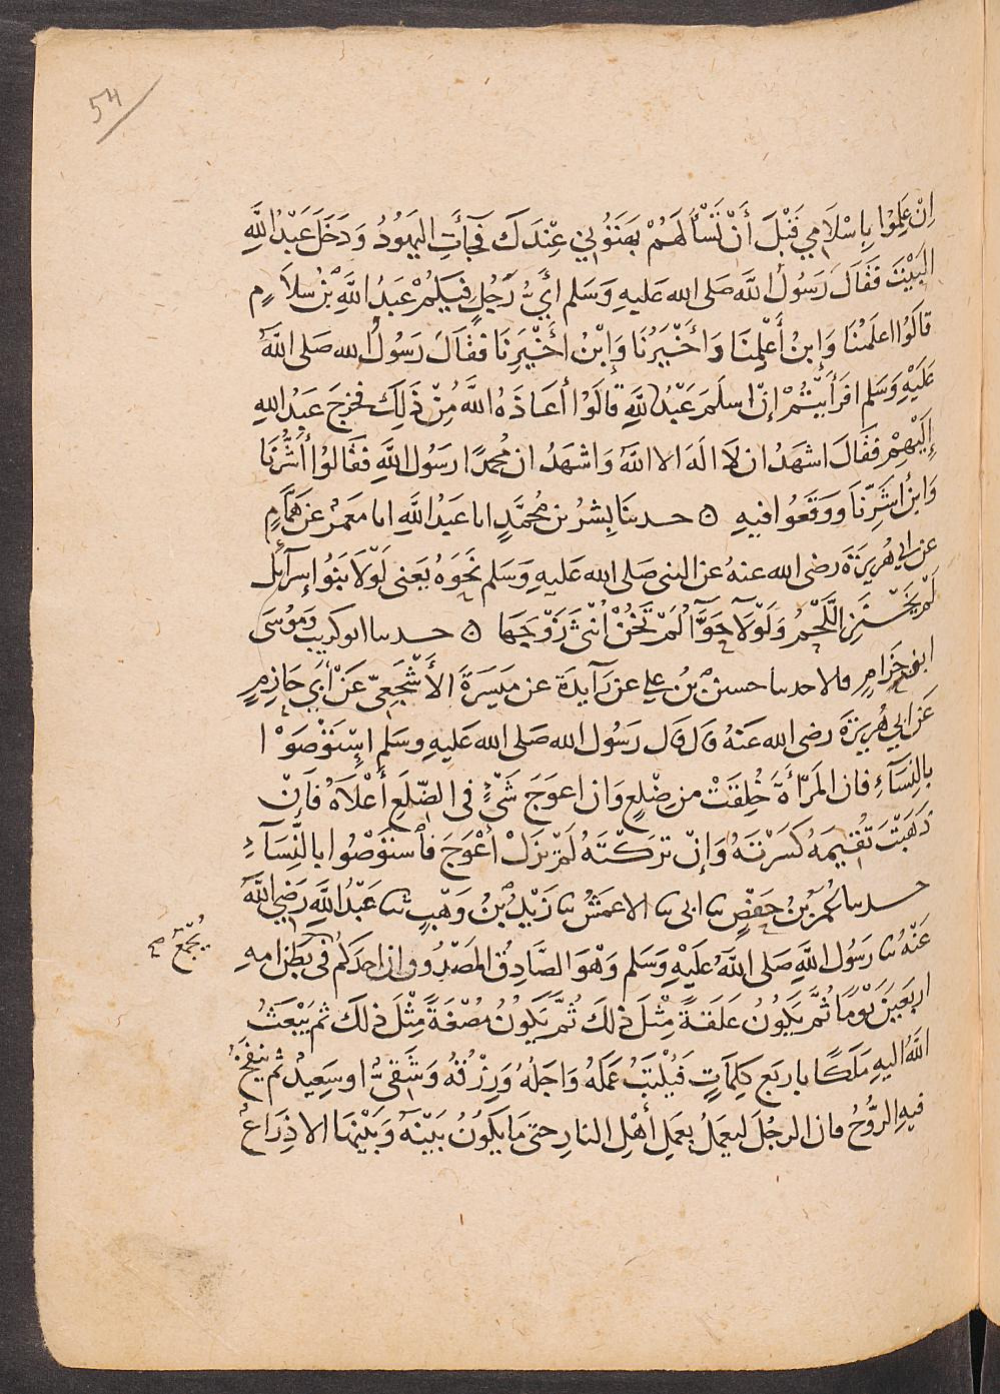 54
اِنْ عَلِمُوا بِاِسْلَامِي قَبْلَ أَنْ تَسْأَلَهُمْ بَهَتُونِي عِنْدَكَ فَجَآءَتِ اليَهُودُ وَدَخَلَ عَبْدُ اللَّهِ
البَيْتَ فَقَالَ رَسُولُ اللَّه صَلى الله عَليهِ وَسَلم أَيُّ رَجُلٍ فِيكُمْ عَبْدُ اللَّهِ بْنُ سلَامٍ
قالُوا اعلَمُنَا وَابنُ أَعْلَمِنَا وَأَخْيَرُنَا وَابْنُ أَخْيَرِنَا فقَالَ رَسُولُ الله صَلى اللهُ
عَلَيْهِ وَسَلم افَرَأَيْتُمْ إِنْ اسلَمَ عَبْدُ اللَّهِ قالُوا أَعَاذَهُ اللَّه مِنْ ذَلِكَ فخرَجَ عَبْدُ اللهِ
إِلَيْهِمْ فَقَالَ اشهَدُ ان لَا الَهَ الا اللهُ وَاشهَدُ ان مُحمدًا رَسُولُ اللَّهِ فقَالُوا أَشَرُّنَا
وَابنُ اشَرِّنَا وَوَقَعُوا فيهِ ۞ حدثنَا بِشرُ بن مُحَمَّدٍ انا عَبْدُ اللَّهِ انا مَعمَرٌ عَن هَمَّامٍ
عن ابي هُرَيرَةَ رضى الله عنهُ عن النبى صَلى الله عَليهِ وَسَلم نَحَوَهُ يَعنى لَوْلَا بَنُوا إِسرَآئيل
لَمْ يَخْنَزِ اللَّحْمُ وَلَوْلَا حَوَّآءُ لَمْ تَخُنْ أُنْثَى زَوْجَهَا ۞ حدثنا ابو كريب وَمُوسَى
ابن حِزَامٍ قالا حدثنا حسينُ بْنُ علي عن زَآيدَةَ عن مَيسَرَةَ الأَشْجَعِيّ عَنْ أَبي حَازِمٍ
عَن ابي هُرَيرَةَ رضى الله عَنهُ قال قال رَسُول الله صَلى الله عَليهِ وسَلم اِسْتَوْصَوْا
بالنِّسَآءِ فان المَرْأَةَ خُلِقَتْ من ضِلْعٍ وَان اعوَجَ شَيْءٍ فى الضِّلَعِ أَعْلَاهُ فَاِنْ
ذَهَبْتَ تُقِيمَهُ كَسَرْتَهُ وَاِنْ تَرَكْتَهُ لَمْ يَزَلْ أَعْوَجَ فَاستَوْصُوا بالنِّسَآءِ
حدثنا عُمَرُ بْنُ حَفْصٍ ثنا ابى ثنا الاعمَشُ ثنا زَيْدُ بْنُ وَهْبٍ ثنا عَبْدُ اللَّهِ رَضِيَ اللَّهُ
عَنْهُ ثنا رَسُول اللَّهِ صَلى اللَّهُ عَلَيْهِ وَسَلم وَهْوَ الصَّادِقُ المَصْدُوق ان احدَكُم فى بَطنِ امهِ
يُجْمَعُ صح
اربَعينَ يَوْمًا ثُمَّ يَكُونُ عَلَقَةً مِثْلَ ذَلكَ ثُمَّ يَكُونُ مُضْغَةً مِثْلَ ذَلكَ ثم يَبْعَثُ
اللَّهُ اليهِ مَلَكًا باربَعِ كِلمَاتٍ فيُكْتَبُ عَمَلُهُ وَاجَلُهُ وَرِزْقُهُ وَشَقِىٌّ اوسَعِيدٌ ثم يُنْفَخُ
فيهِ الرُّوْحُ فان الرجُلَ ليعمَلُ بعَمَلِ أَهْلِ النارِ حتى مَا يكُونُ بَيْنَهُ وَبَيْنَها الا ذِرَاعٌ